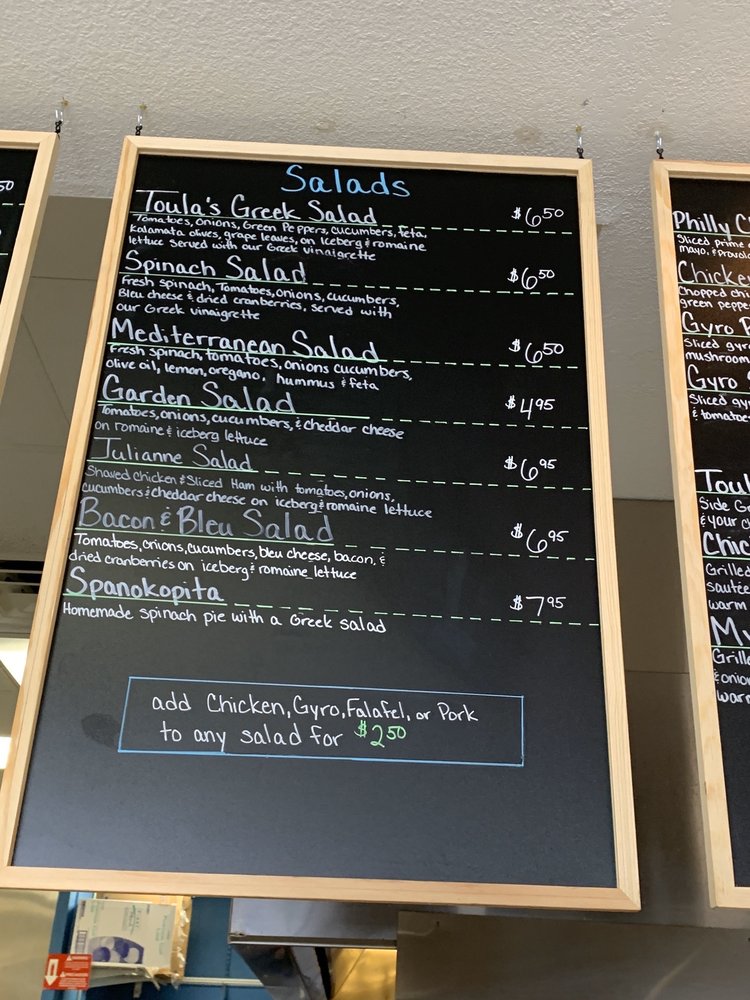 Salads
Toula's Greek Salad $6.50
Tomatoes, Onions, Green Peppers, cucumbers, feta,
Kalamata olives, grape leaves, on Iceberg & romaine
lettuce Served with our Greek Vinaigrette
Spinach Salad $6.50
Fresh spinach, Tomatoes, onions, cucumbers,
Bleu cheese & dried cranberries, served with
our Greek vinaigrette
Mediterranean Salad $6.50
Fresh spinach, tomatoes, onions cucumbers,
olive oil, lemon, oregano, hummus & feta
Garden Salad $4.95
Tomatoes, onions, cucumbers, & cheddar cheese
on romaine & iceberg lettuce
Julianne Salad $6.95
Shaved chicken & Sliced Ham with tomatoes, onions,
cucumbers & cheddar cheese on iceberg & romaine lettuce
Bacon & Bleu Salad $6.95
Tomatoes, onions, cucumbers, bleu cheese, bacon, &
dried cranberries on iceberg & romaine lettuce
Spanokopita $7.95
Homemade spinach pie with a Greek salad
add Chicken, Gyro, Falafel, or Pork
to any salad for $2.50
50
Philly
Sliced prime
mayo, & provol
Chicke
Chopped chi
green peppe
Gyro
Sliced gyr
mushroom
Gyro
Sliced gy
& tomatoe
Toul
Side G
& your
Chic
Grilled
sautée
warm
Grill
& onion
war